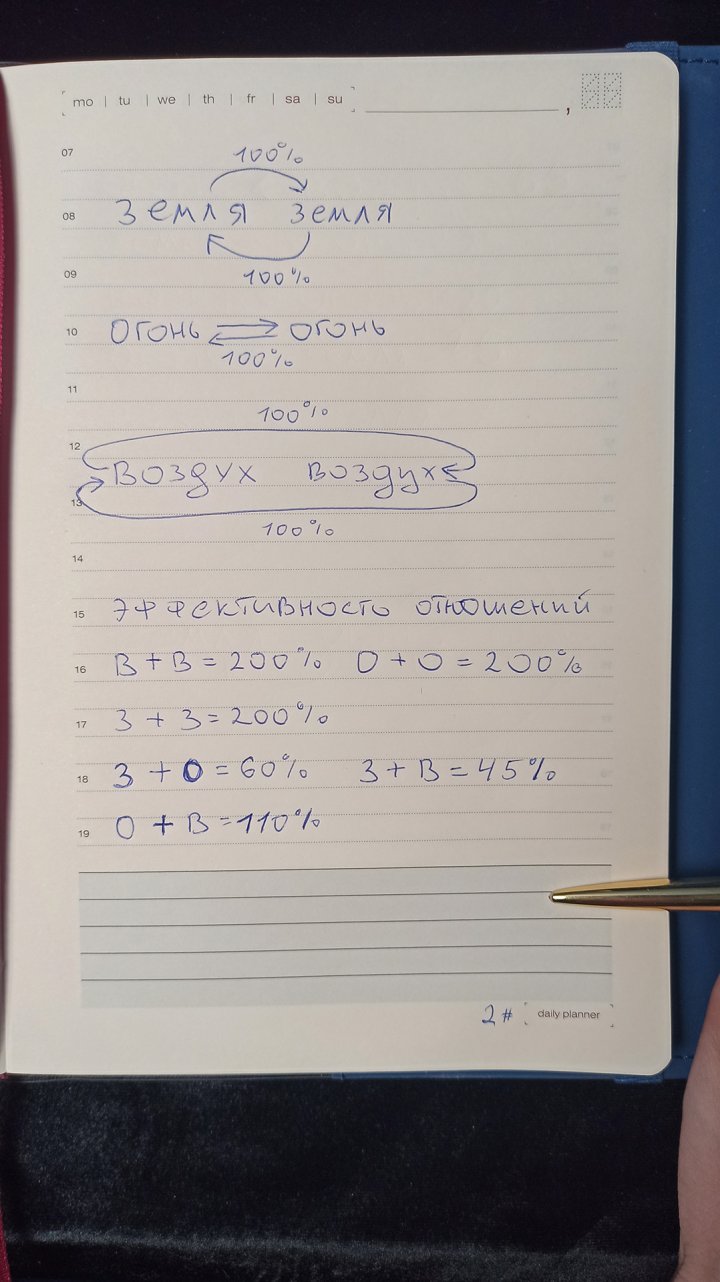 mo | tu | we | th | fr | sa | su ,
07
100%
08 Земля земля
09 100%
10 огонь огонь
100%
11
100%
12
воздух воздух
13
100%
14
15 эффективность отношений
16 В + В = 200% О + О = 200%
17 З + З = 200%
18 З + О = 60% З + В = 45%
19 О + В = 110%
2# daily planner